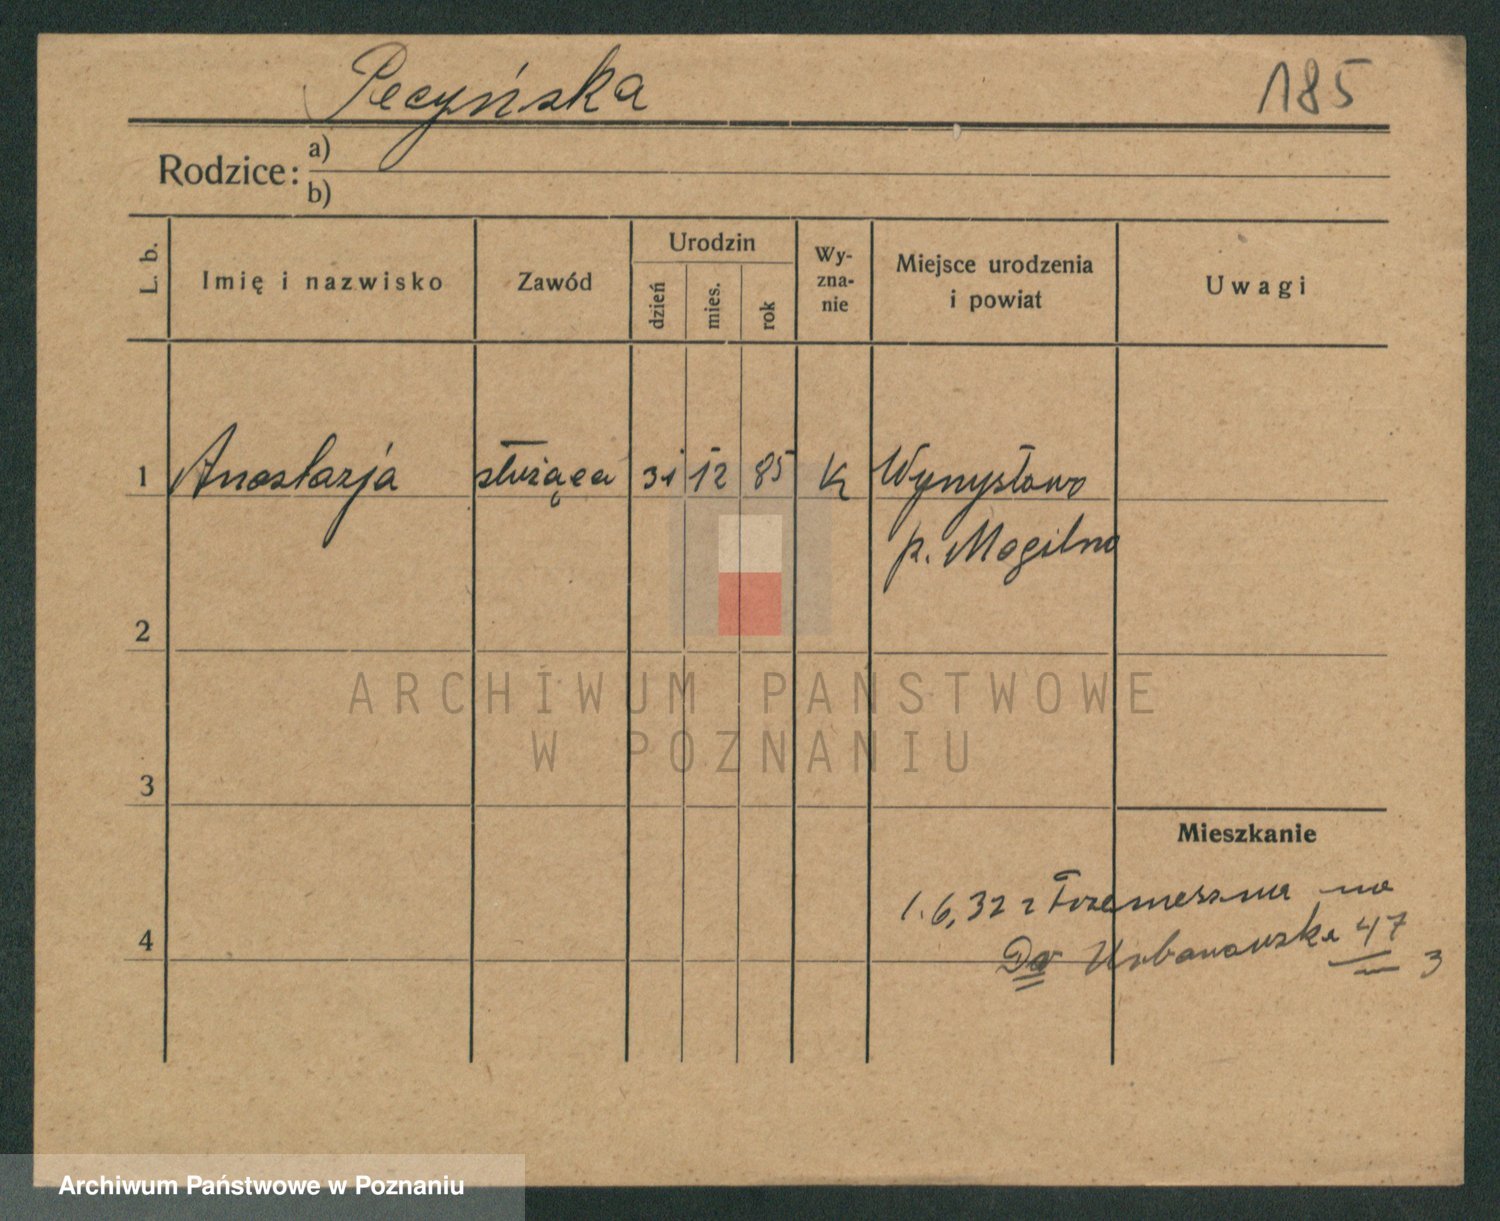 Pecyńska
185
Rodzice: a)
b)
L. b.
Imię i nazwisko
Zawód
Urodzin
dzień
mies.
rok
Wy-
zna-
nie
Miejsce urodzenia
i powiat
Uwagi
1 Anastazja służąca 31 12 85 K Wymysłowo
p. Mogilno
2
3
4
Mieszkanie
1.6,32 z Trzemeszna na
Urbanowska 47
3
ARCHIWUM PAŃSTWOWE
W POZNANIU
Archiwum Państwowe w Poznaniu